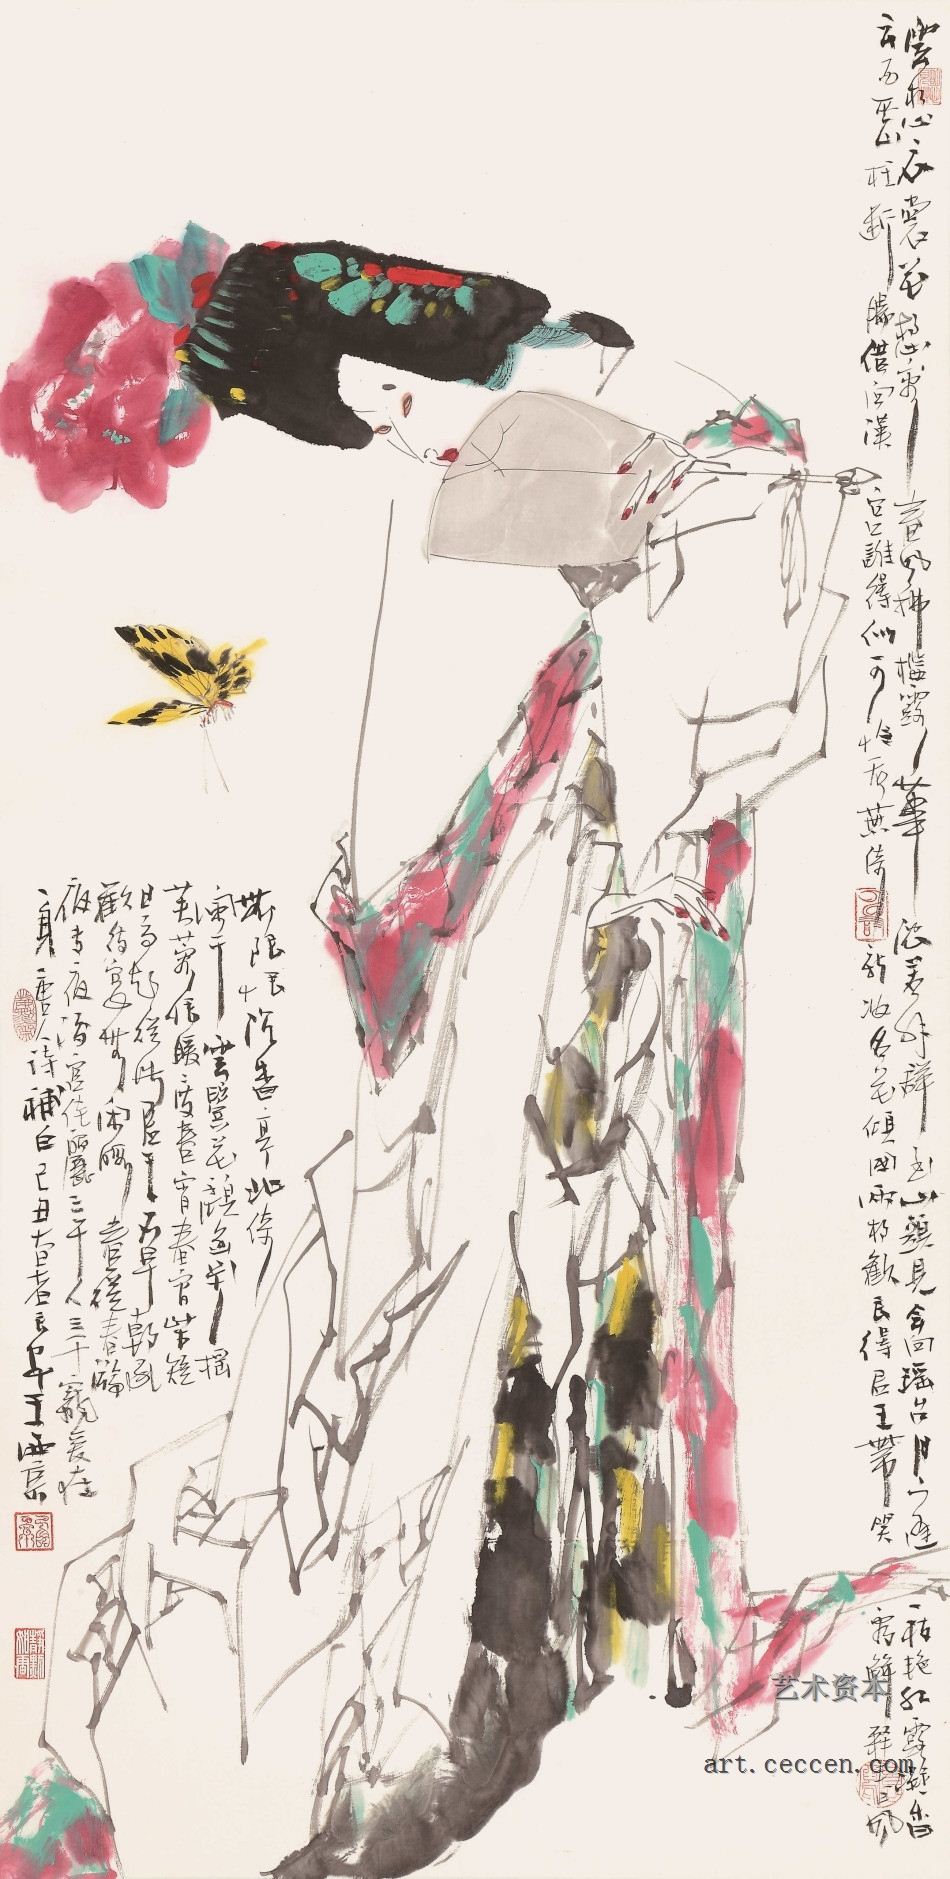 雲想衣裳花想容春風拂檻露華濃若非群玉山頭見會向瑶台月下逢一枝艳紅露凝香
云雨巫山枉断腸借问漢宫誰得似可憐飛燕倚新妝名花傾國兩相歡長得君王帶笑看解释春風
無限恨沉香亭北倚
闌干雲鬢花顏金步摇
芙蓉帳暖度春宵春宵苦短
日高起從此君王不早朝承
歡侍宴無閑暇春從春游
夜專夜后宫佳麗三千人三千寵爱在
一身唐人诗補白己丑大暑長安王西京
艺术资本
art.ceccen.com